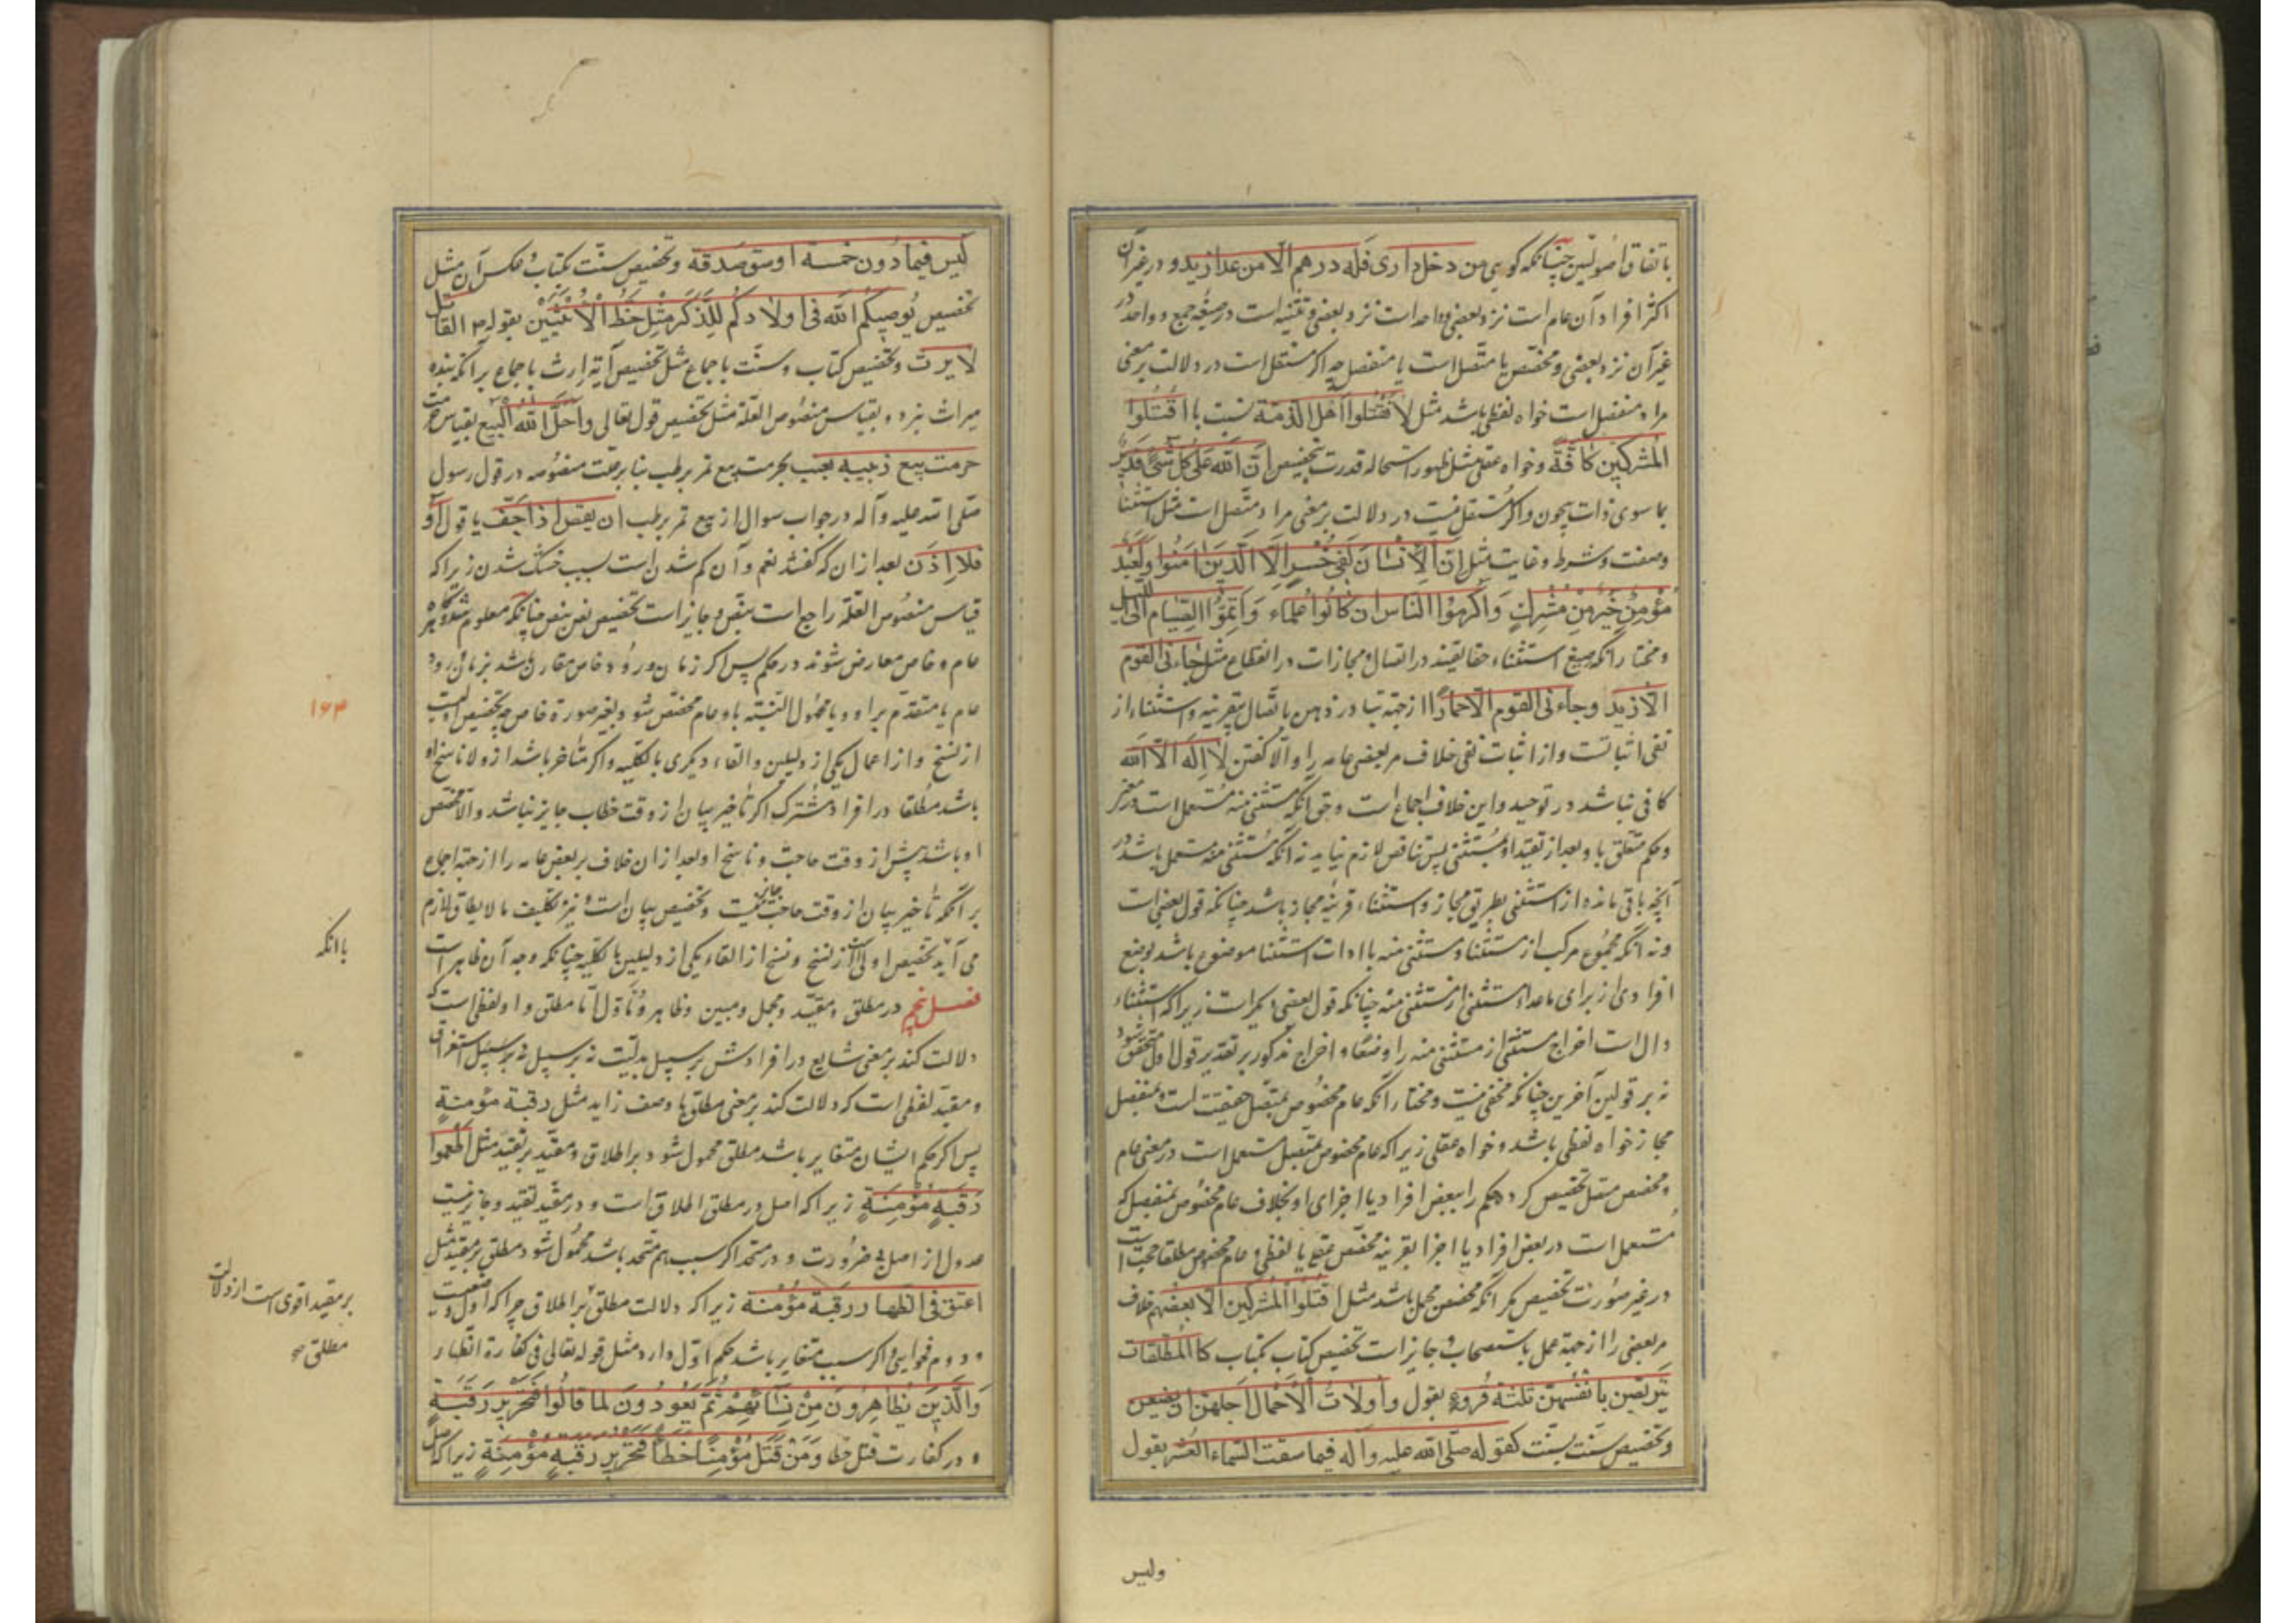 باتفاق اصولیین چنانکه کویی من دخل داری فله درهم الا من عدا زید و در غیر آن
اکثر افراد آن عام است نزد بعضی و واحد است نزد بعضی و تثنیه است در صیغه جمع و واحد در
غیر آن نزد بعضی و مخصص یا متصل است یا منفصل چه اکر مستقل است در دلالت بر معنی
مراد منفصل است خواه لفظی باشد مثل لا تقتلوا اهل الذمة نسبت با اقتلوا
المشرکین کافة و خواه عقلی مثل ظهور استحاله قدرت بتخصیص ان الله علی کل شئ قدیر
بما سوی ذات بیچون و اکر مستقل نیست در دلالت بر معنی مراد متصل است مثل استثنا
و صفت و شرط و غایت مثل ان الانسان لفی خسر الا الذین امنوا و لعبد
مؤمن خیر من مشرك و اکرموا الناس ان کانوا علماء و اتموا الصیام الی اللیل
و مختار آنکه صیغ استثناء حقایقند در اتصال و مجازات در انقطاع مثل جاءنی القوم
الا زید و جاءنی القوم الا حمارا از جهة تبادر ذهن باتصال بی قرینه و استثناء از
نفی اثباتست و از اثبات نفی خلاف مر بعضی عامه را و الا کفتن لا اله الا الله
کافی نباشد در توحید و این خلاف اجماع است و حق آنکه مستثنی منه مستعمل است در
و حکم متعلق باو بعد از تقید او بمستثنی پس تناقض لازم نیاید نه آنکه مستثنی منه مستعمل باشد در
آنچه باقی مانده از استثنی بطریق مجاز و استثناء قرینه مجاز باشد چنانکه قول بعضی است
و نه آنکه مجموع مرکب از مستثنا و مستثنی منه با ادات استثنا موضوع باشد بوضع
افرادی از برای ماعداء مستثنی از مستثنی منه چنانکه قول بعضی دیکر است زیرا که استثناء
دال است اخراج مستثنی از مستثنی منه را وضعا و اخراج مذکور بر تقدیر قول اول متحقق شود
نه بر قولین آخرین چنانکه مخفی نیست و مختار آنکه عام مخصوص بمتصل حقیقت است و بمنفصل
مجاز خواه لفظی باشد و خواه عقلی زیرا که عام مخصوص بمتصل مستعمل است در معنی عام
و مخصص متصل تخصیص کرد حکم را ببعض افراد یا اجزای او بخلاف عام مخصوص بمنفصل که
مستعمل است در بعض افراد یا اجزا بقرینه مخصص عقلی یا لفظی و عام مخصوص مطلقا حجت است
در غیر صورت تخصیص مکر آنکه مخصص مجمل باشد مثل اقتلوا المشرکین الا بعضهم خلاف
مر بعضی را از جهة عمل باستصحاب و جایز است تخصیص کتاب بکتاب کالمطلقات
یتربصن بانفسهن ثلثة قروء بقول و اولات الاحمال اجلهن ان یضعن
و تخصیص سنت بسنت کقوله صلی الله علیه و آله فیما سقت السماء العشر بقول
ولیس
لیس فیما دون خمسة اوسق صدقة و تخصیص سنت بکتاب و عکس آن مثل
تخصیص یوصیکم الله فی اولادکم للذکر مثل حظ الانثیین بقوله م القاتل
لا یرث و تخصیص کتاب و سنت باجماع مثل تخصیص آیة ارث باجماع بر آنکه بنده
میراث نبرد و بقیاس منصوص العلة مثل تخصیص قول تعالی و احل الله البیع بقیاس حرمت
حرمت بیع زبیب بعنب بحرمت بیع تمر برطب بنا بر علت منصوصه در قول رسول
صلی الله علیه و آله در جواب سوال از بیع تمر برطب ان ینقص اذا جف یا قول او
فلا اذن بعد از ان که کفتند نعم و آن کم شدن است بسبب خشک شدن زیرا که
قیاس منصوص العلة راجع است بنص و جایز است تخصیص نص بنص چنانکه معلوم شد و هرکاه
عام و خاص معارض شوند در حکم پس اکر زمان ورود خاص مقارن باشد بزمان ورود
عام یا متقدم بر او و یا مجهول النسبته باو عام مخصص شود بغیر صورة خاص چه تخصیص اولیست
از نسخ و از اعمال یکی از دلیلین و القاء دیکری بالکلیه و اکر متاخر باشد از و لا ناسخ او
باشد مطلقا در افراد مشترک اکر تأخیر بیان از وقت خطاب جایز نباشد و الا مخصص
او باشد پیش از وقت حاجت و ناسخ او بعد از ان خلاف بر بعض عامه را از جهة اجماع
بر آنکه تأخیر بیان از وقت حاجت جایز نیست و تخصیص بیان است و نیز تکلیف ما لا یطاق لازم
می آید تخصیص اولی است از نسخ و نسخ از القاء یکی از دلیلین بالکلیه چنانکه وجه آن ظاهر است
فصل پنجم در مطلق و مقید و مجمل و مبین و ظاهر و مأول اما مطلق و او لفظی است که
دلالت کند بر معنی شایع در افرادش بر سبیل بدلیت نه بر سبیل نه بر سبیل استغراق
و مقید لفظی است که دلالت کند بر معنی مطلق با وصف زاید مثل رقبة مؤمنة
پس اکر حکم ایشان متغایر باشد مطلق محمول شود بر اطلاق و مقید بر تقید مثل اطعموا
رقبة مؤمنة زیرا که اصل در مطلق اطلاق است و در مقید تقید و جایز نیست
عدول از اصل بی ضرورت و در متحد اکر سبب هم متحد باشد محمول شود مطلق بر مقید مثل
اعتق فی الظهار رقبة مؤمنة زیرا که دلالت مطلق بر اطلاق چرا که اول
و دوم فحوایی و اکر سبب متغایر باشد حکم اول دارد مثل قوله تعالی فی کفارة الظهار
و الذین یظاهرون من نسائهم ثم یعودون لما قالوا فتحریر رقبة
و در کفارت قتل خطا و من قتل مؤمنا خطأ فتحریر رقبة مؤمنة زیرا که اصل
۱۶۳
باانکه
بر مقید اقوی است از دلالت
مطلق صح